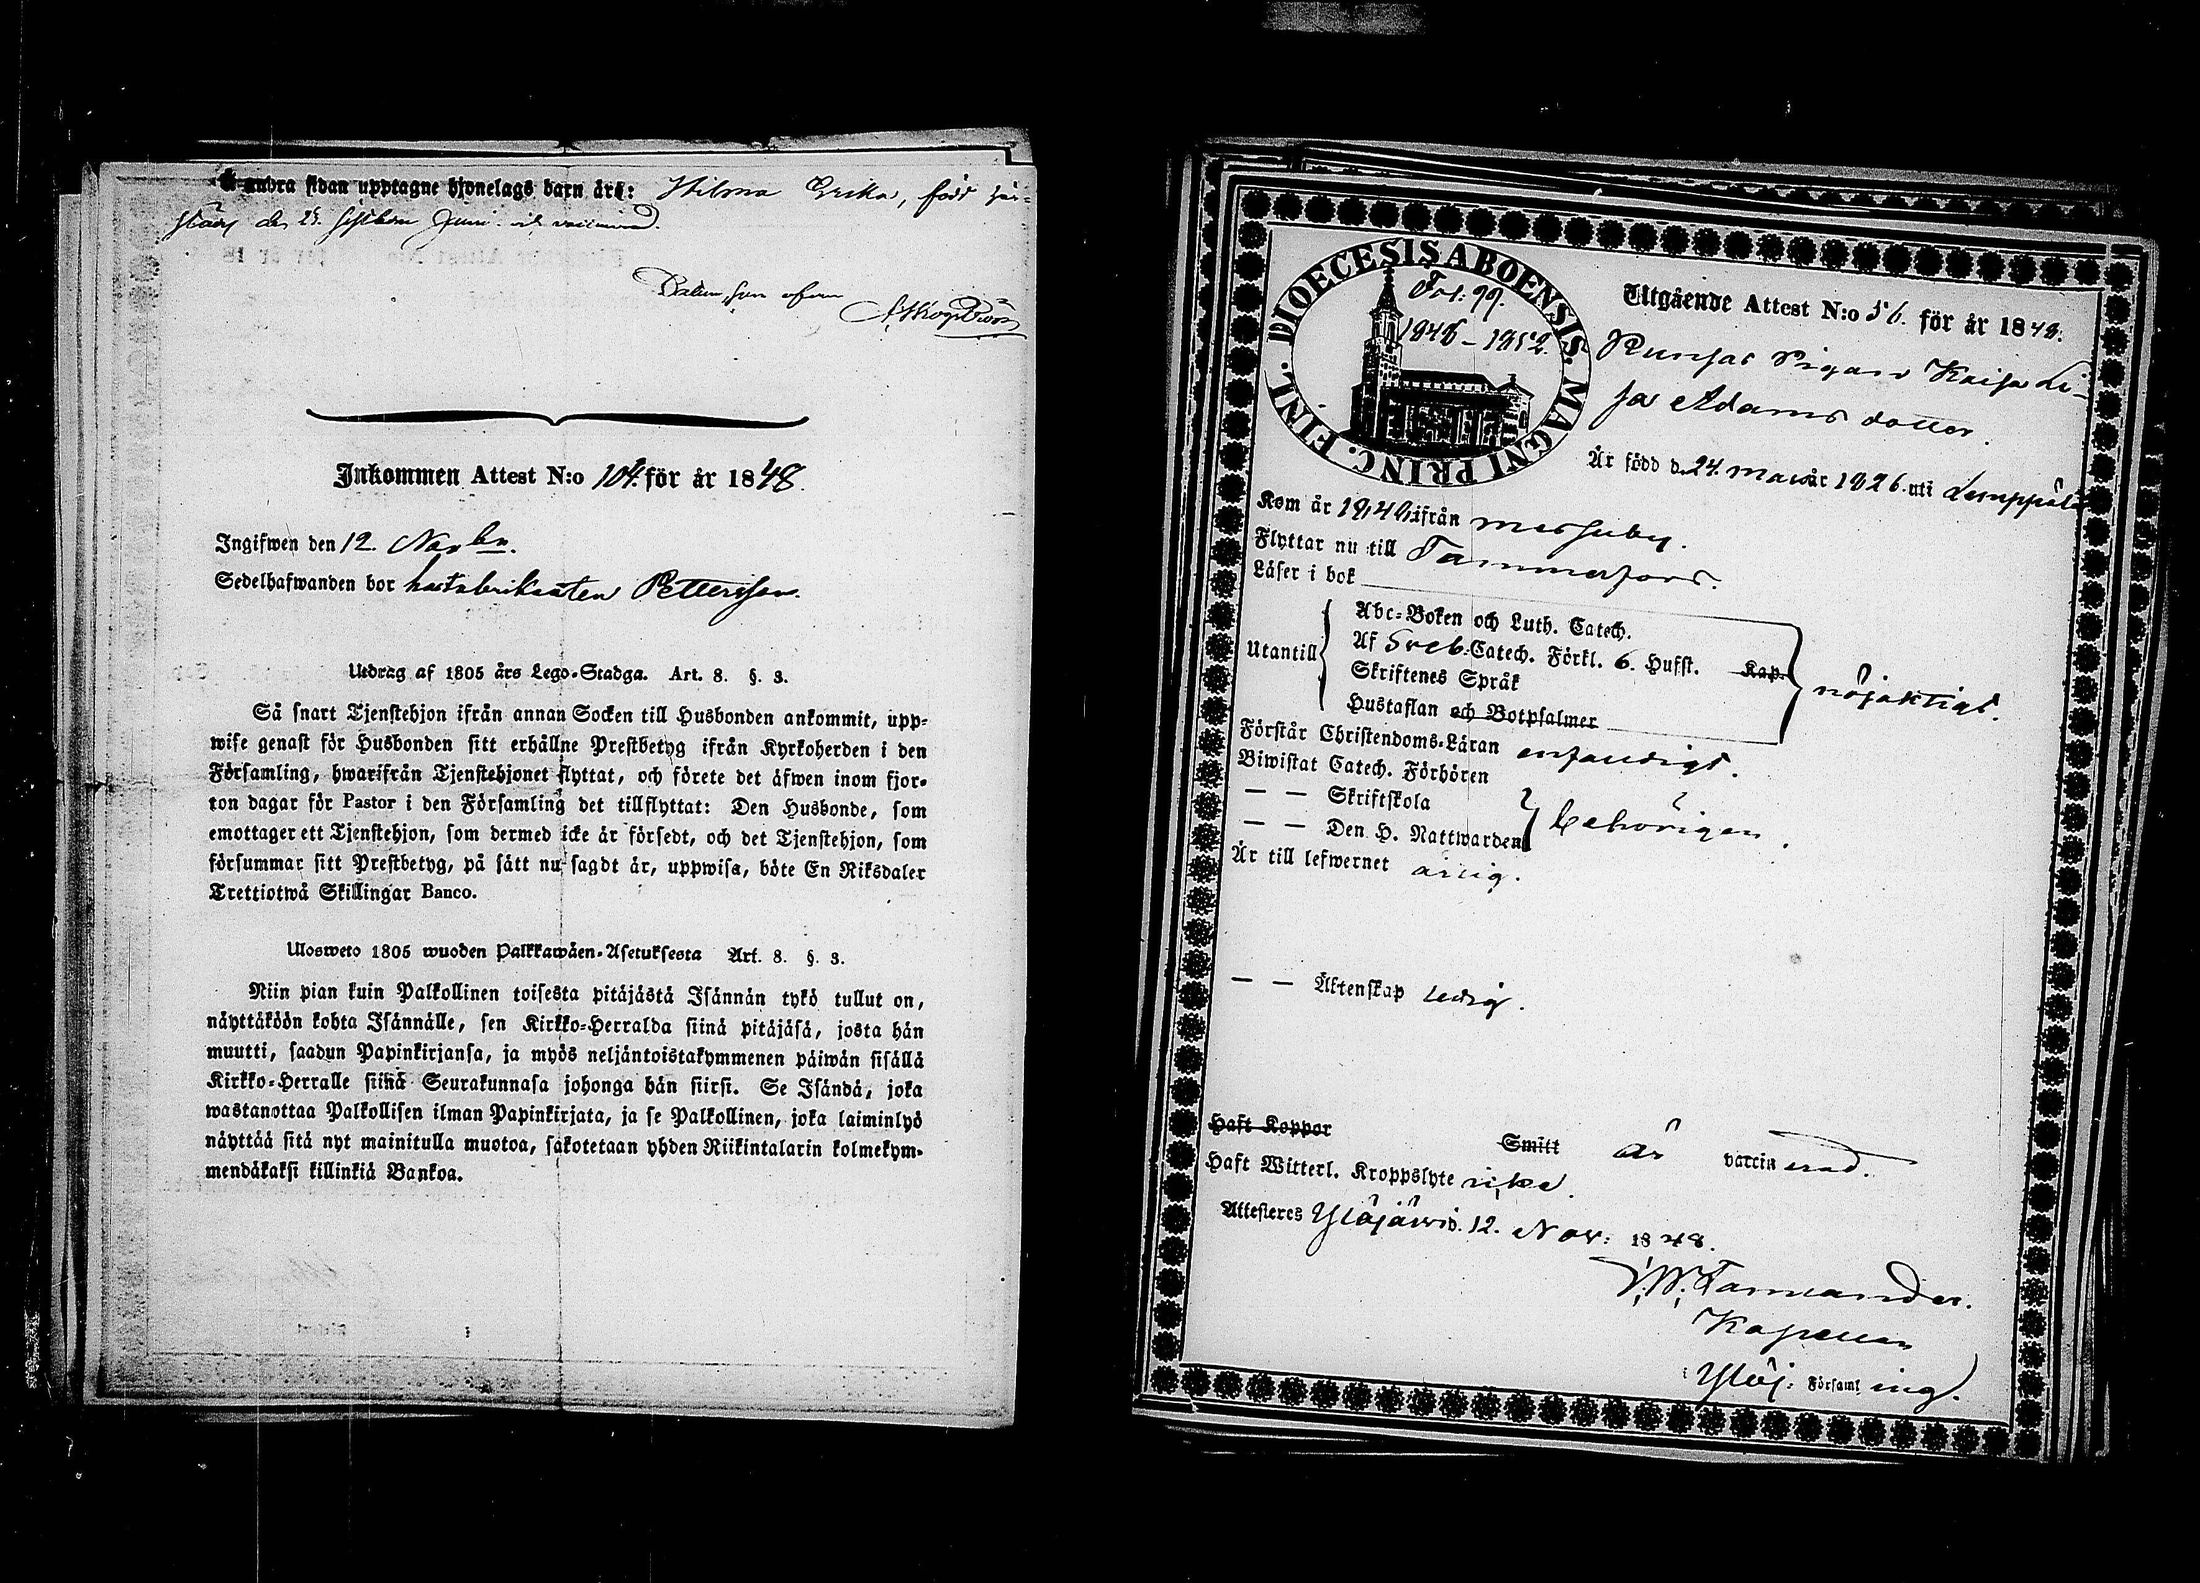 Å andra sidan upptagne hjonelags barn äro: Hilma Erika, född här-
städes den 25. sistledne Juni och vaccinerad.
Datum som ofvan
Inkommen Attest N:o 104. för år 1848.
Ingifwen den 12. Novbr.
Sedelhafwanden bor hattfabrikanten Pettersson.
Utdrag af 1805 års Lego-Stadga. Art. 8. §. 3.
Så snart Tjenstehjon ifrån annan Socken till Husbonden ankommit, upp-
wise genast för Husbonden sitt erhållne Prestbetyg ifrån Kyrkoherden i den
Församling, hwarifrån Tjenstehjonet flyttat, och förete det äfwen inom fjor-
ton dagar för Pastor i den Församling det tillflyttat: Den Husbonde, som
emottager ett Tjenstehjon, som dermed icke är försedt, och det Tjenstehjon, som
försummar sitt Prestbetyg, på sätt nu sagdt är, uppwisa, böte En Riksdaler
Trettiotwå Skillingar Banco.
Ulosweto 1805 wuoden Palkkawäen-Asetuksesta Art. 8. §. 3.
Niin pian kuin Palkollinen toisesta pitäjästä Isännän tykö tullut on,
näyttäköön kohta Isännälle, sen Kirkko-Herralda siinä pitäjäsä, josta hän
muutti, saadun Papinkirjansa, ja myös neljäntoistakymmenen päiwän sisällä
Kirkko-Herralle siinä Seurakunnasa johonga hän siirsi. Se Isändä, joka
wastanottaa Palkollisen ilman Papinkirjata, ja se Palkollinen, joka laiminlyö
näyttää sitä nyt mainitulla muotoa, sakotetaan yhden Riikintalarin kolmekym-
mendäkaksi killinkiä Bankoa.
DIOECESIS ABOENSIS. MAGNI PRINC. FINL.
Fol: 99.
1846-1852.
Utgående Attest N:o 56. för år 1848.
Runsas Pigan Kaisa Li-
sa Adams dotter.
Är född d. 24. Mars år 1826. uti Lemppälä
Kom år 1846. ifrån Messuby.
Flyttar nu till Tammerfors.
Läser i bok
Utantill
Abc-Boken och Luth. Catech.
Af Sveb. Catech. Förkl. 6. Hufst. Kap.
Skriftenes Språk
Hustaflan och Botpsalmer
nöjaktigt.
Förstår Christendoms-Läran enfaldigt.
Biwistat Catech. Förhören
— — Skriftskola
— — Den H. Nattwarden
behörigen.
Är till lefwernet ärlig.
— — Äktenskap ledig.
Haft Koppor Smitt är vaccinerad.
Haft Witterl. Kroppslyte icke.
Attesteres Ylöjärvi d. 12. Nov: 1848.
Kapellan
i Ylöj: Församling.